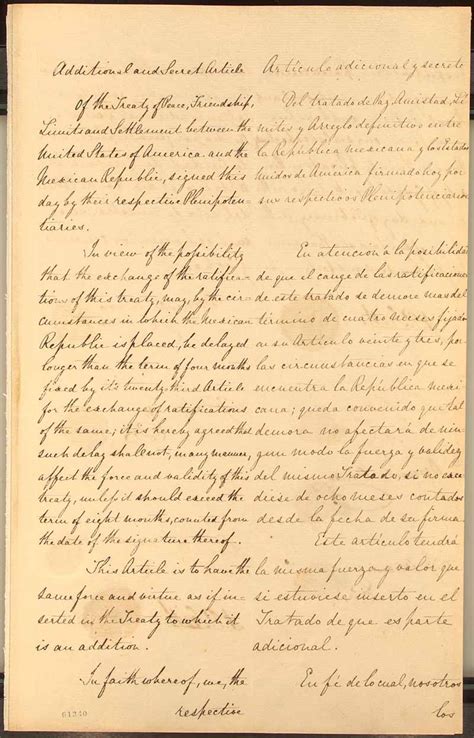 Additional and Secret Article
Of the Treaty of Peace, Friendship,
Limits and Settlement between the
United States of America and the
Mexican Republic, signed this
day by their respective Plenipoten-
tiaries.
In view of the possibility
that the exchange of the ratifica-
tions of this treaty, may, by the cir-
cumstances in which the Mexican
Republic is placed, be delayed
longer than the term of four months
fixed by it's twenty-third Article
for the exchange of ratifications
of the same; it is hereby agreed that
such delay shall not, in any manner,
affect the force and validity of this
treaty, unless it should exceed the
term of eight months, counted from
the date of the signature thereof.
This Article is to have the
same force and virtue as if in-
serted in the Treaty to which it
is an addition.
In faith whereof, we, the
respective
Artículo adicional y secreto
Del tratado de Paz, Amistad, Lí-
mites y Arreglo definitivo entre
la República mexicana y los Estados
Unidos de América firmado hoy por
sus respectivos Plenipotenciarios
En atencion á la posibilidad
de que el cange de las ratificaciones
de este tratado se demore mas del
término de cuatro meses fijado
en su Artículo veinte y tres, por
las circunstancias en que se
encuentra la República mexi
cana; queda convenido que tal
demora no afectará de nin-
gun modo la fuerza y validez
del mismo Tratado, si no exce
diese de ocho meses contados
desde la fecha de su firma.
Este artículo tendrá
la misma fuerza y valor que
si estuviese inserto en el
Tratado de que es parte
adicional.
En fé de lo cual, nosotros
los